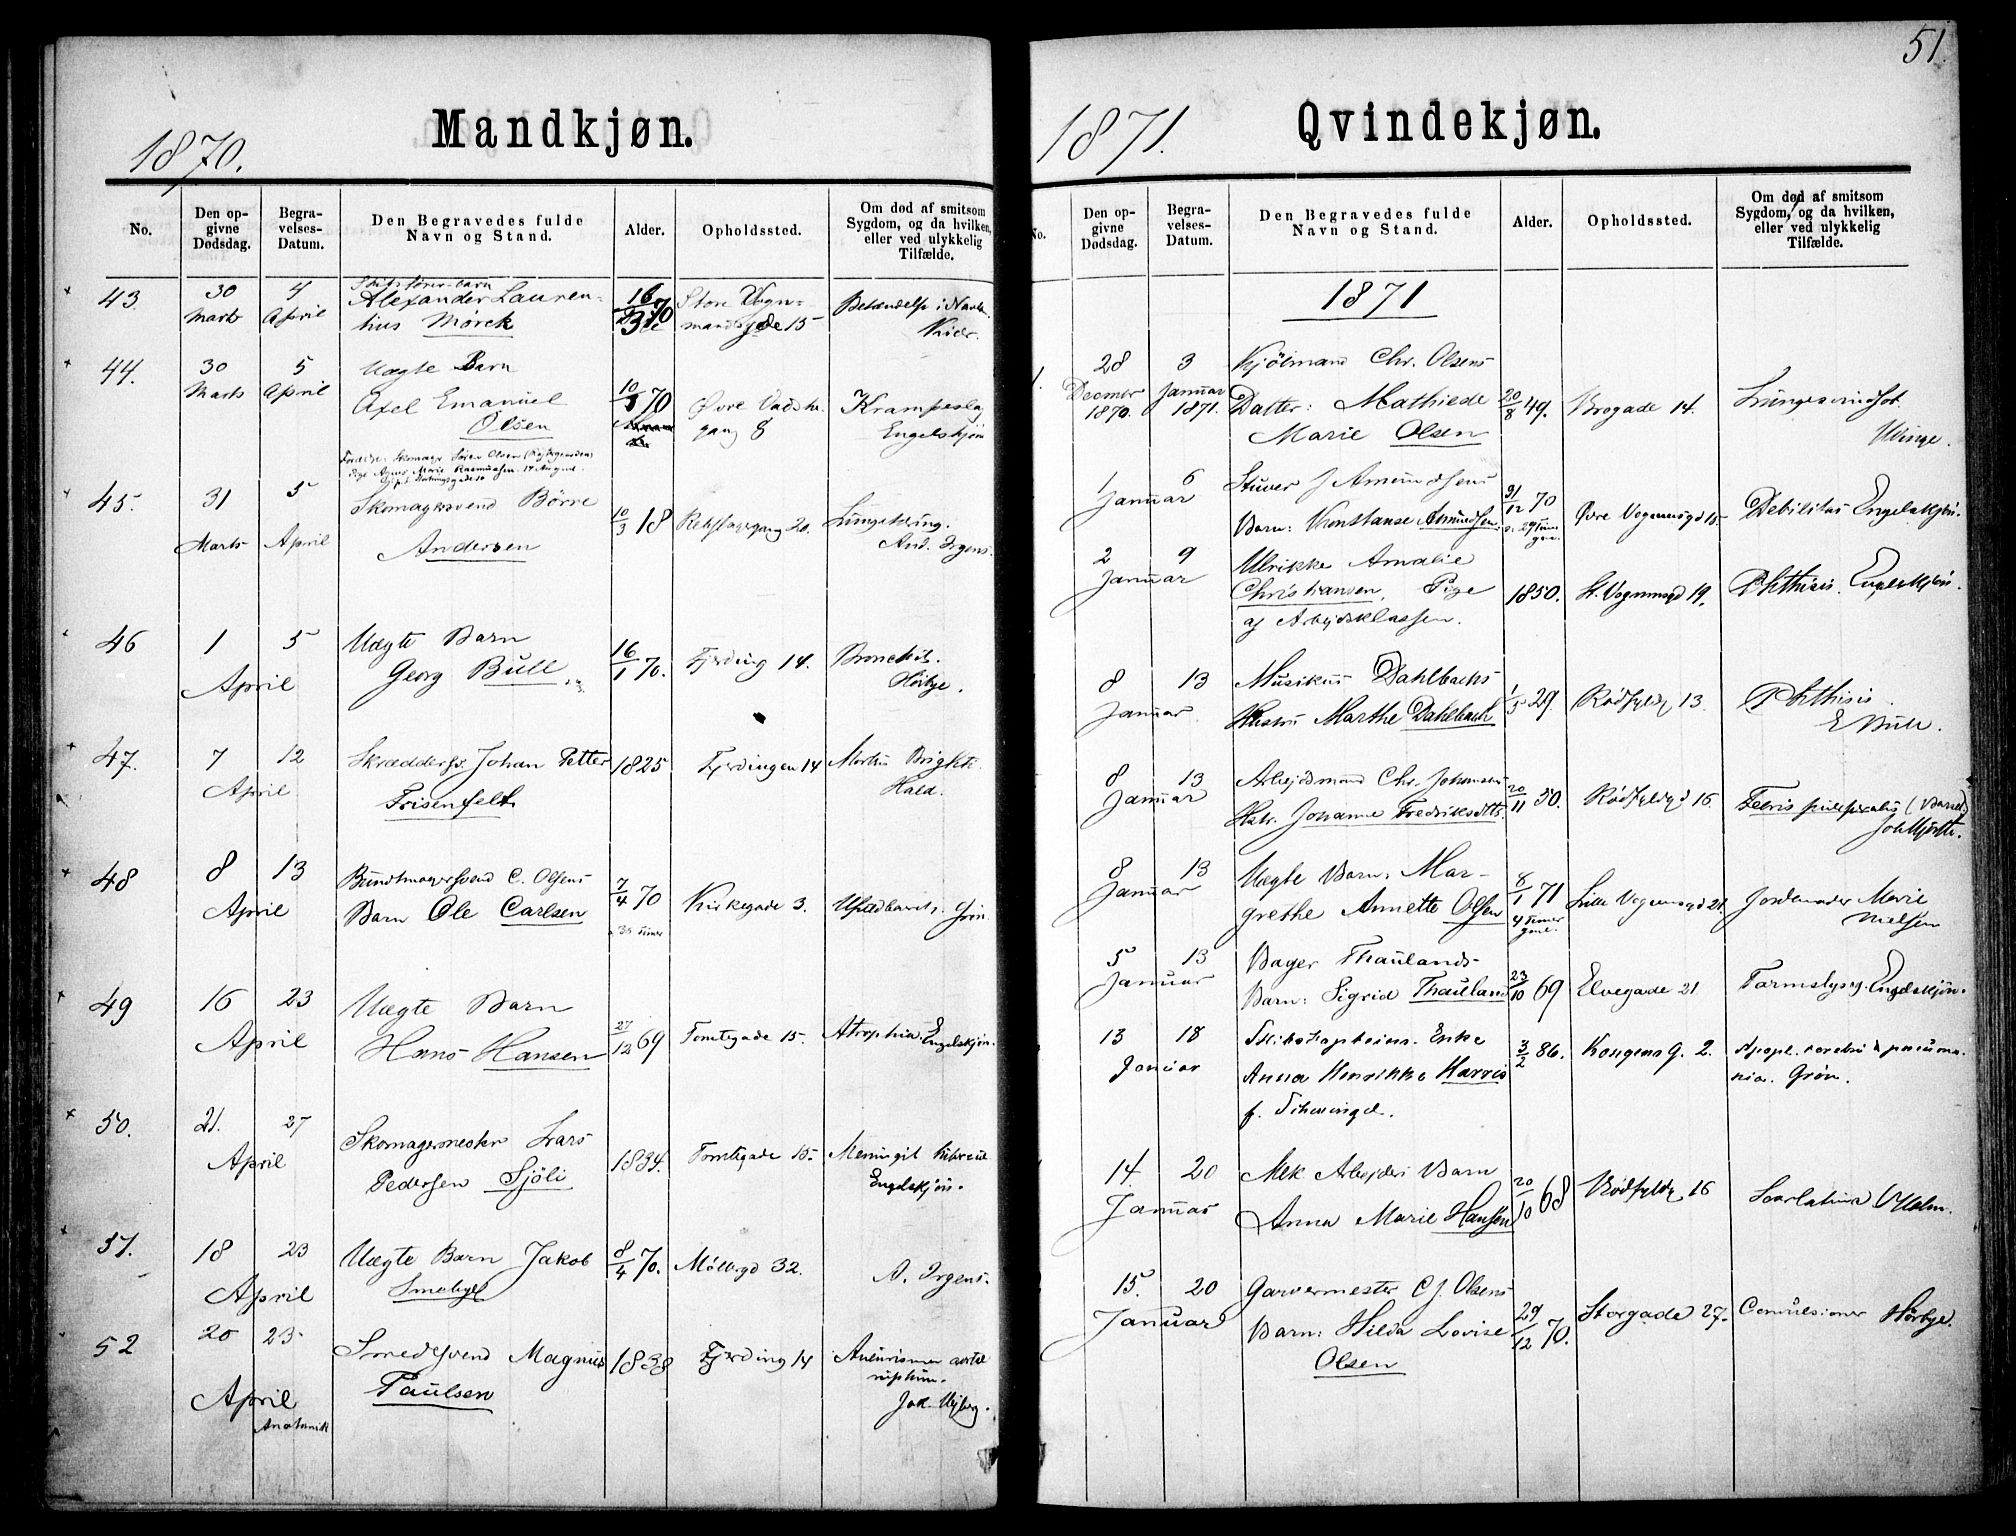 1870.
Mandkjøn.
No.
Den op-
givne
Dødsdag.
Begra-
velses-
Datum.
Den Begravedes fulde
Navn og Stand.
Alder.
Opholdssted.
Om død af smitsom
Sygdom, og da hvilken,
eller ved ulykkelig
Tilfælde.
43.
30
Marts
4
April
barn
Alexander Lauren-
tius Mörck
16
70
Store Vogn-
mandsgade 15
Betændelse i
44.
30
Marts
5
April
Uægte Barn
Axel Emanuel
Olsen
10/3 70
Øvre
gang 8
Krampeslag
Engelskjøn
Forældre: Skomager Søren Olsen
Pige Agnes Marie Rasmussen. 17 August
45.
31
Marts
5
April
Skomagersvend Börre
Andersen
10/3 18
Rebslagergang 20.
Lungetæring.
And. Irgens.
46
1
April
5
Uægte Barn
Georg Bull
16/1 70.
Fjerding 14.
Bronchit.
Hörbye.
47.
7
April
12
Skræddersv. Johan Petter
Frisenfelt
1825
Fjerdingen 14
Morbus Brightii.
Hald.
48
8
April
13
Bundtmagersvend C. Olsens
Barn Ole Carlsen
7/4 70
Kirkegade 3.
Ufuldbaaret.
49
16
April
23
Uægte Barn
Hans Hansen
27/12 69
Tomtegade 15.
Atrophia. Engelskjøn.
50.
21.
April
27
Skomagermester Lars
Pedersen Sjöli
1834.
Tomtegade 15
Meningit
Engelskjøn.
51.
18
April
23
Uægte Barn Jakob
Smebye
8/4 70.
Möllergd 32.
A. Irgens.
52
20
April
23
Anatomik
Smedsvend Magnus
Paulsen
1838
Fjerding 14
Aneurisma aortæ
ruptum.
51.
1871.
Qvindekjøn.
No.
Den op-
givne
Dødsdag.
Begra-
velses-
Datum.
Den Begravedes fulde
Navn og Stand.
Alder.
Opholdssted.
Om død af smitsom
Sygdom, og da hvilken,
eller ved ulykkelig
Tilfælde.
1871
1.
28
Decmbr
1870.
3
Januar
1871.
Kjölmand Chr. Olsens
Datter: Mathilde
Marie Olsen
20/8 49.
Brogade 14.
Lungesvindsot.
Winge.
1
Januar
6
Stuer J Amundsens
Barn: Konstanse Amundsen
31/12 70
Øvre Vognmsgd 15
Debilitas Engelskjön.
2
Januar
9
Ulrikke Amalie
Christiansen, Pige
af Arbejdsklassen.
1850.
St. Vognmsgd 19.
Phthisis. Engelskjön.
8
Januar.
13
Musikus Dahlbachs
Hustru Marthe Dahlbach
1/5 29.
Rödfyldg 13.
Phthisis
E Bull.
8
Januar
13
Arbejdsmand Chr. Johansens
Hstr. Johanne Fredriksdttr.
20/11 30.
Rödfyldgd 16.
Febris puerperalis (Barsel).
Joh Hjorth.
8
Januar
13
Uægte Barn: Mar-
grethe Annette Olsen
8/1 71
4 timer
gml.
Lille Vognmsgd 21.
Jordemoder Marie
Nielsen
5
Januar
13
Bager Thaulands
Barn: Sigrid Thauland
23/10 69
Elvegade 21.
Tarmslyng. Engelskjön.
13
Januar
18
Skibskapteins Enke
Anna Henrikke Harris
f. Schwingel.
3/2 86.
Kongens G. 2.
Apopl. cerebri & pneumo-
nia. Grön.
14.
Januar
20
Mek. Arbejders Barn
Anna Marie Hansen
20/10 68
Rödfyldg 16
Scarlatina Holm.
15.
Januar
20
Garvermester C J. Olsens
Barn: Hilda Lovise
Olsen
29/12 70.
Storgade 27.
Convulsioner Hörbye.